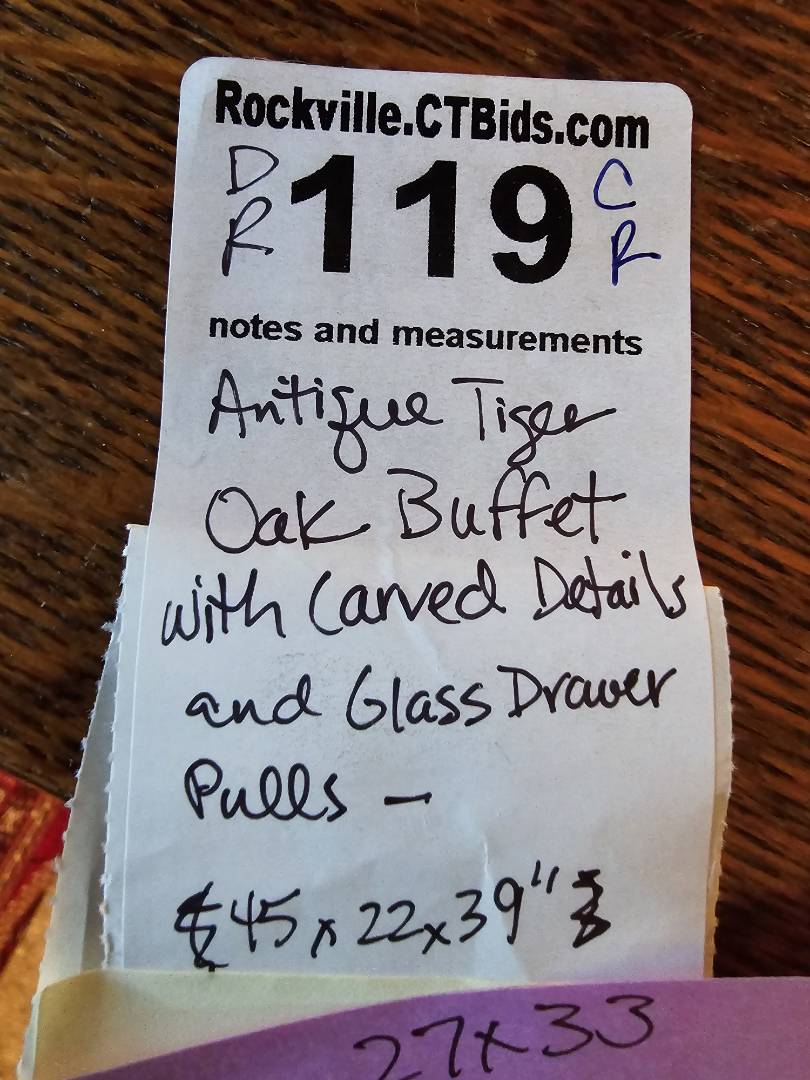 Rockville.CTBids.com
D R 119 C R
notes and measurements
Antique Tiger
Oak Buffet
with Carved Details
and Glass Drawer
Pulls —
{45 x 22 x 39"}
27 x 33